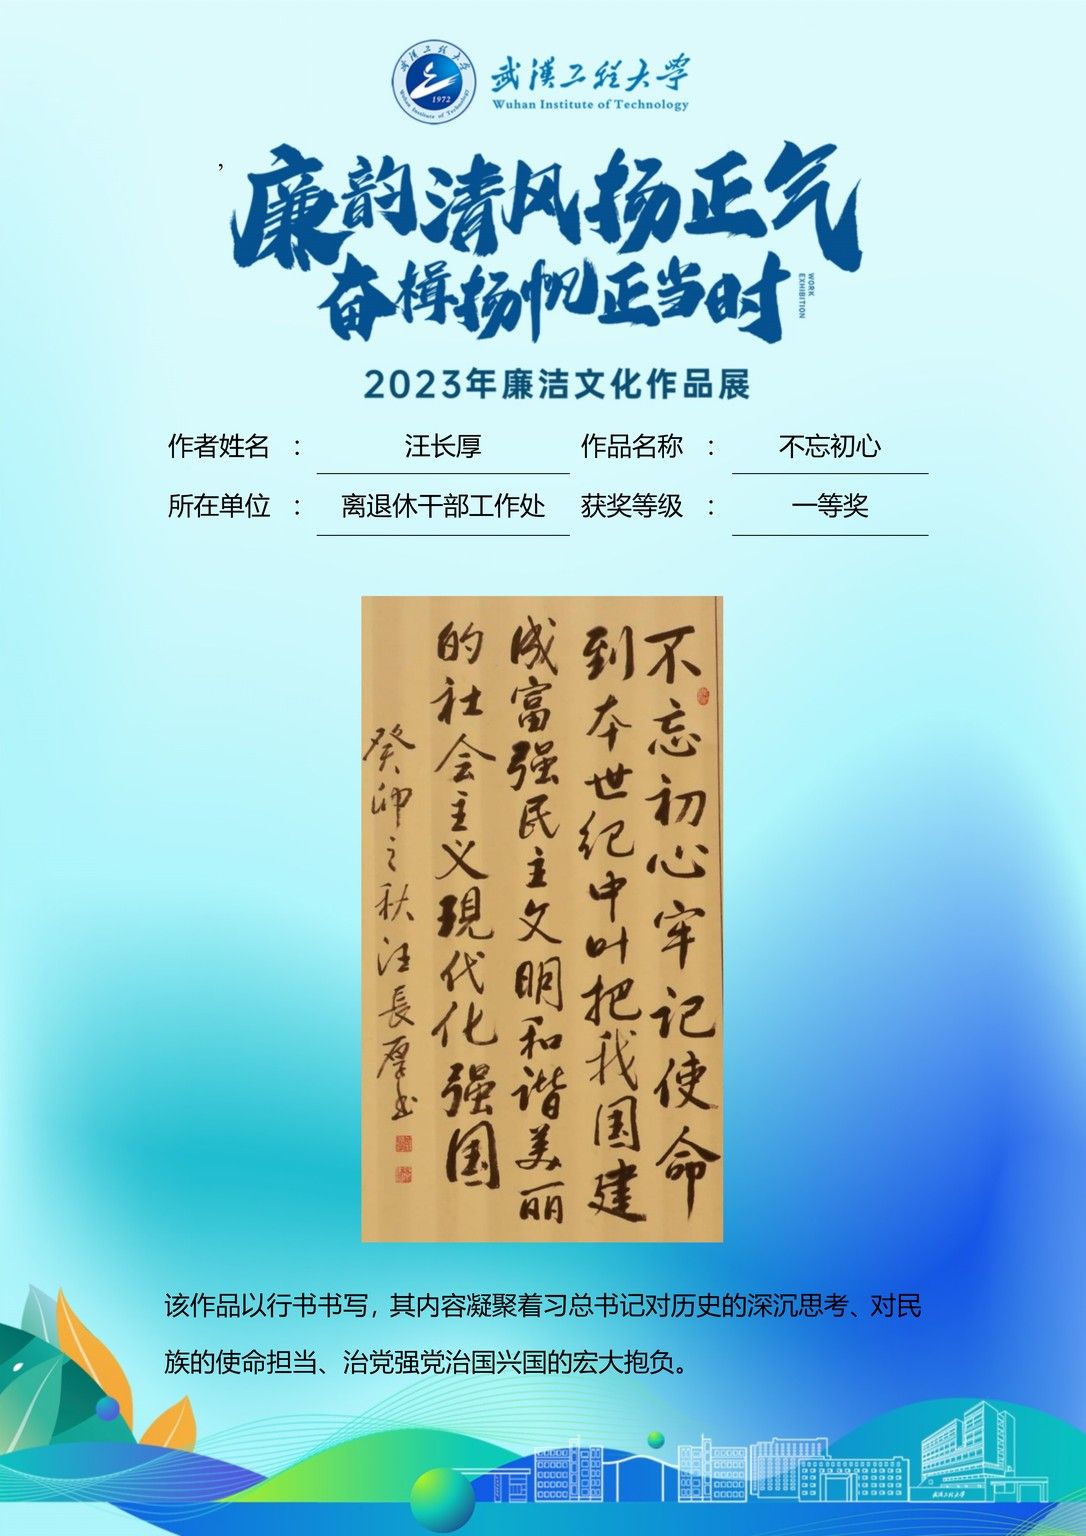 武汉工程大学
Wuhan Institute of Technology
1972
,
廉韵清风扬正气
奋楫扬帆正当时
WORK
EXHIBITION
2023年廉洁文化作品展
作者姓名 : 汪长厚 作品名称 : 不忘初心
所在单位 : 离退休干部工作处 获奖等级 : 一等奖
不忘初心牢记使命
到本世纪中叶把我国建
成富强民主文明和谐美丽
的社会主义現代化强国
癸卯之秋汪長厚书
该作品以行书书写, 其内容凝聚着习总书记对历史的深沉思考、对民
族的使命担当、治党强党治国兴国的宏大抱负。
武汉工程大学